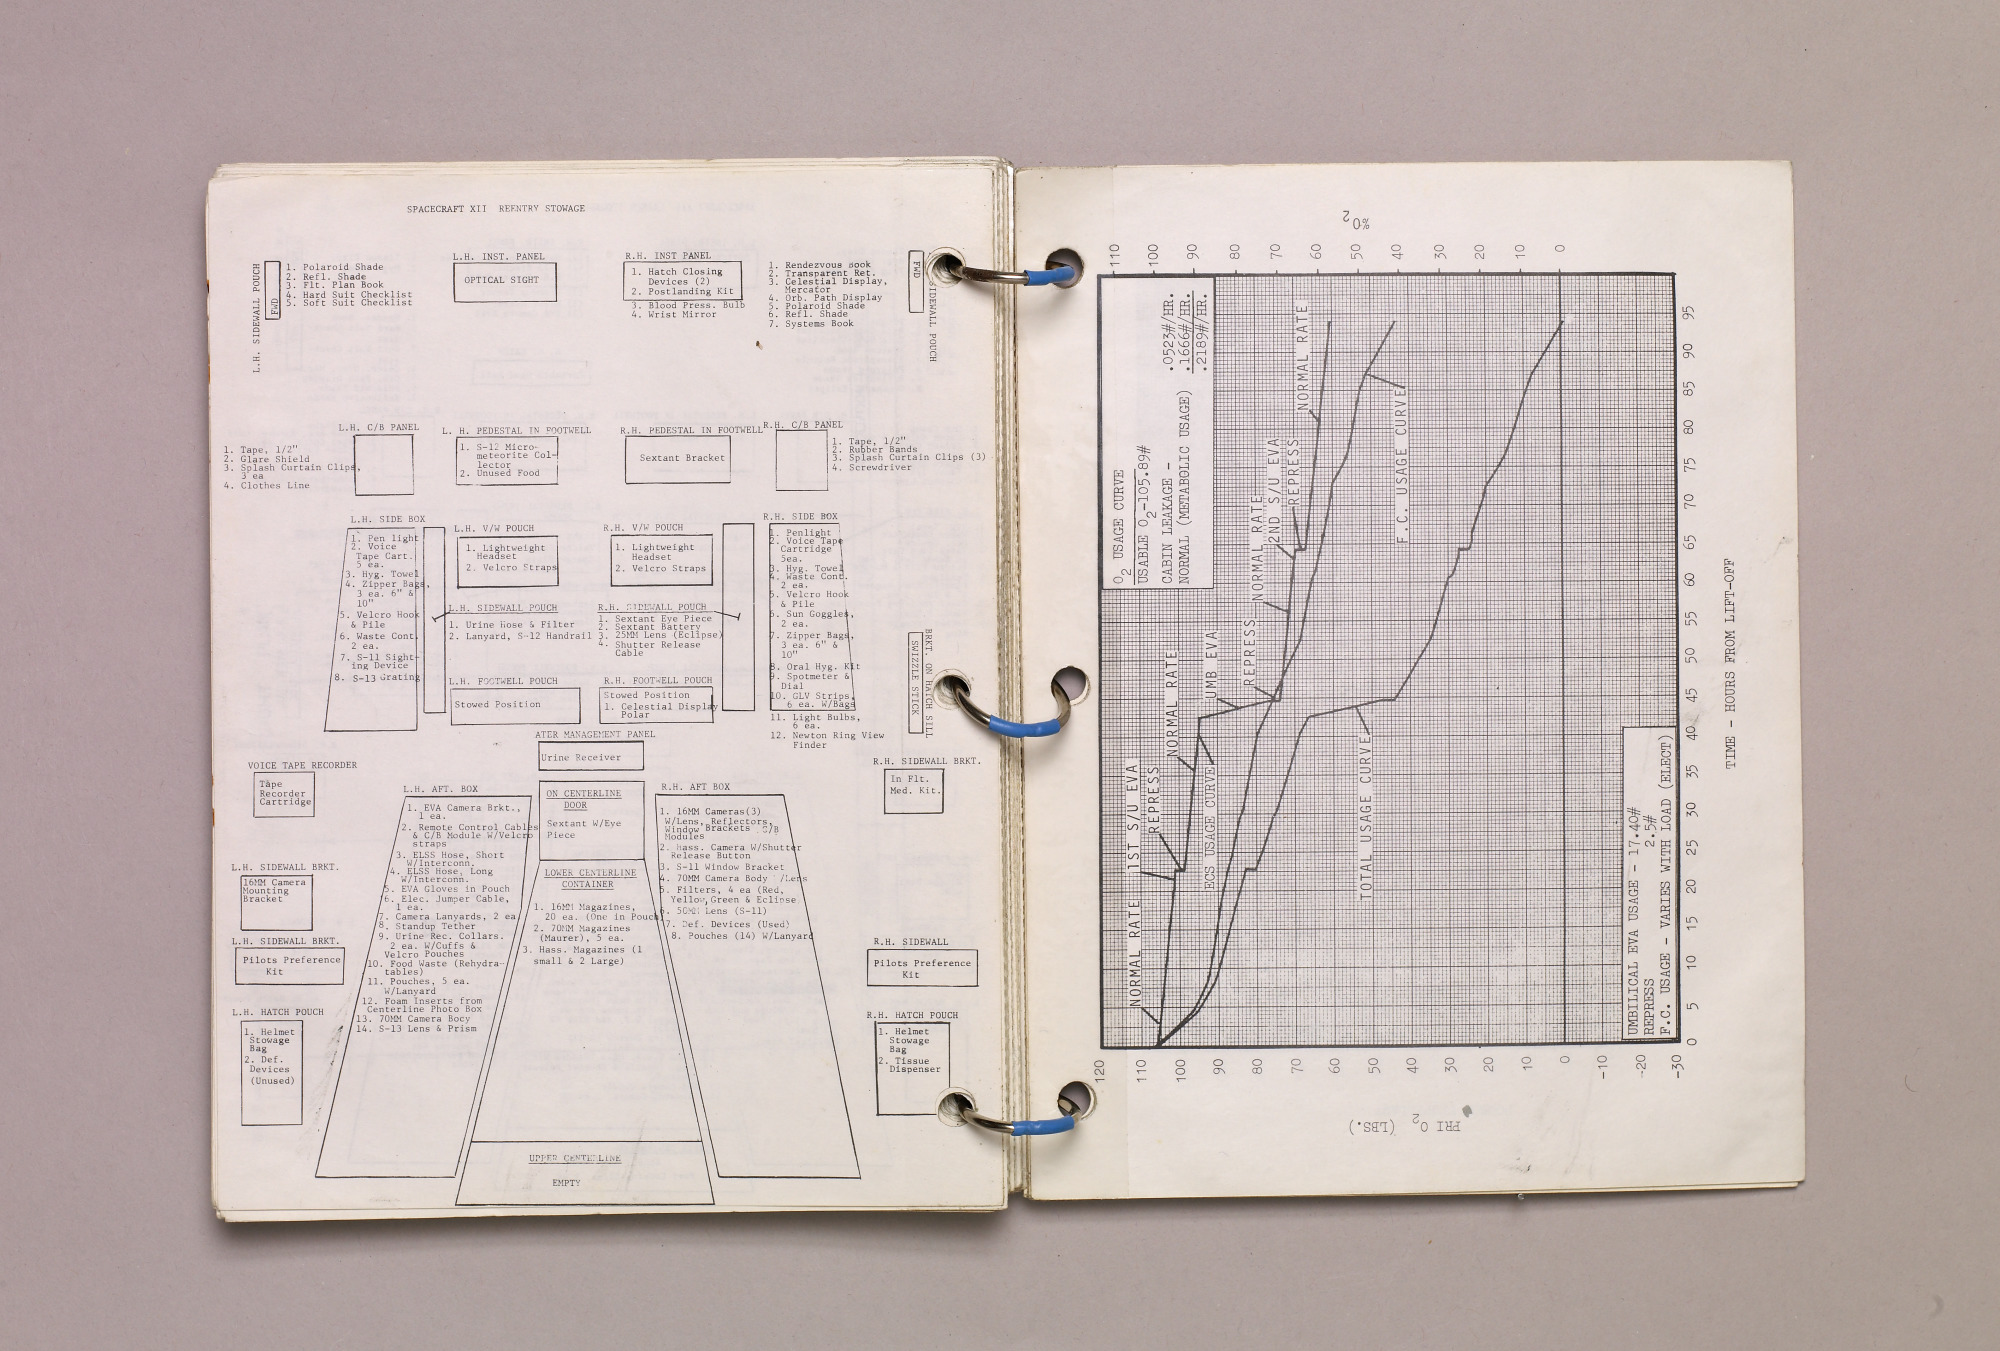 SPACECRAFT XII REENTRY STOWAGE
L.H. SIDEWALL POUCH
FWD
1. Polaroid Shade
2. Refl. Shade
3. Flt. Plan Book
4. Hard Suit Checklist
5. Soft Suit Checklist
L.H. INST. PANEL
OPTICAL SIGHT
R.H. INST PANEL
1. Hatch Closing
Devices (2)
2. Postlanding Kit
3. Blood Press. Bulb
4. Wrist Mirror
1. Rendezvous Book
2. Transparent Ret.
3. Celestial Display,
Mercator
4. Orb. Path Display
5. Polaroid Shade
6. Refl. Shade
7. Systems Book
FWD
SIDEWALL POUCH
L.H. C/B PANEL
1. Tape, 1/2"
2. Glare Shield
3. Splash Curtain Clips,
3 ea
4. Clothes Line
L. H. PEDESTAL IN FOOTWELL
1. S-12 Micro-
meteorite Col-
lector
2. Unused Food
R.H. PEDESTAL IN FOOTWELL
Sextant Bracket
R.H. C/B PANEL
1. Tape, 1/2"
2. Rubber Bands
3. Splash Curtain Clips (3)
4. Screwdriver
L.H. SIDE BOX
1. Pen light
2. Voice
Tape Cart.
5 ea.
3. Hyg. Towel
4. Zipper Bags,
3 ea. 6" &
10"
5. Velcro Hook
& Pile
6. Waste Cont.
2 ea.
7. S-11 Sight-
ing Device
8. S-13 Grating
L.H. V/W POUCH
1. Lightweight
Headset
2. Velcro Straps
R.H. V/W POUCH
1. Lightweight
Headset
2. Velcro Straps
L.H. SIDEWALL POUCH
1. Urine Hose & Filter
2. Lanyard, S-12 Handrail
R.H. SIDEWALL POUCH
1. Sextant Eye Piece
2. Sextant Battery
3. 25MM Lens (Eclipse)
4. Shutter Release
Cable
L.H. FOOTWELL POUCH
Stowed Position
R.H. FOOTWELL POUCH
Stowed Position
1. Celestial Display
Polar
R.H. SIDE BOX
1. Penlight
2. Voice Tape
Cartridge
5ea.
3. Hyg. Towel
4. Waste Cont.
2 ea.
5. Velcro Hook
& Pile
6. Sun Goggles,
2 ea.
7. Zipper Bags,
3 ea. 6" &
10"
8. Oral Hyg. Kit
9. Spotmeter &
Dial
10. GLV Strips,
6 ea. W/Bags
11. Light Bulbs,
6 ea.
12. Newton Ring View
Finder
BRKT. ON HATCH SILL
SWIZZLE STICK
ATER MANAGEMENT PANEL
Urine Receiver
VOICE TAPE RECORDER
Tape
Recorder
Cartridge
R.H. SIDEWALL BRKT.
In Flt.
Med. Kit.
L.H. AFT. BOX
1. EVA Camera Brkt.,
1 ea.
2. Remote Control Cables
& C/B Module W/Velcro
straps
3. ELSS Hose, Short
W/Interconn.
4. ELSS Hose, Long
W/Interconn.
5. EVA Gloves in Pouch
6. Elec. Jumper Cable,
1 ea.
7. Camera Lanyards, 2 ea
8. Standup Tether
9. Urine Rec. Collars.
2 ea. W/Cuffs &
Velcro Pouches
10. Food Waste (Rehydra-
tables)
11. Pouches, 5 ea.
W/Lanyard
12. Foam Inserts from
Centerline Photo Box
13. 70MM Camera Bocy
14. S-13 Lens & Prism
ON CENTERLINE
DOOR
Sextant W/Eye
Piece
LOWER CENTERLINE
CONTAINER
1. 16MM Magazines,
20 ea. (One in Pouch)
2. 70MM Magazines
(Maurer), 5 ea.
3. Hass. Magazines (1
small & 2 Large)
R.H. AFT BOX
1. 16MM Cameras(3)
W/Lens, Reflectors,
Window Brackets C/B
Modules
2. Hass. Camera W/Shutter
Release Button
3. S-11 Window Bracket
4. 70MM Camera Body /Lens
5. Filters, 4 ea (Red,
Yellow,Green & Eclipse
6. 50MM Lens (S-11)
7. Def. Devices (Used)
8. Pouches (14) W/Lanyard
L.H. SIDEWALL BRKT.
16MM Camera
Mounting
Bracket
L.H. SIDEWALL BRKT.
Pilots Preference
Kit
L.H. HATCH POUCH
1. Helmet
Stowage
Bag
2. Def.
Devices
(Unused)
R.H. SIDEWALL
Pilots Preference
Kit
R.H. HATCH POUCH
1. Helmet
Stowage
Bag
2. Tissue
Dispenser
UPPER CENTERLINE
EMPTY
%O2
110 100 90 80 70 60 50 40 30 20 10 0
O2 USAGE CURVE
USABLE O2-105.89#
CABIN LEAKAGE - .0523#/HR.
NORMAL (METABOLIC USAGE) .1666#/HR.
.2189#/HR.
NORMAL RATE
1ST S/U EVA
REPRESS
NORMAL RATE
ECS USAGE CURVE
UMB EVA
REPRESS
NORMAL RATE
2ND S/U EVA
REPRESS
NORMAL RATE
F.C. USAGE CURVE
TOTAL USAGE CURVE
UMBILICAL EVA USAGE - 17.40#
REPRESS 2.5#
F.C. USAGE - VARIES WITH LOAD (ELECT)
0 5 10 15 20 25 30 35 40 45 50 55 60 65 70 75 80 85 90 95
TIME - HOURS FROM LIFT-OFF
120 110 100 90 80 70 60 50 40 30 20 10 0 -10 -20 -30
PRI O2 (LBS.)